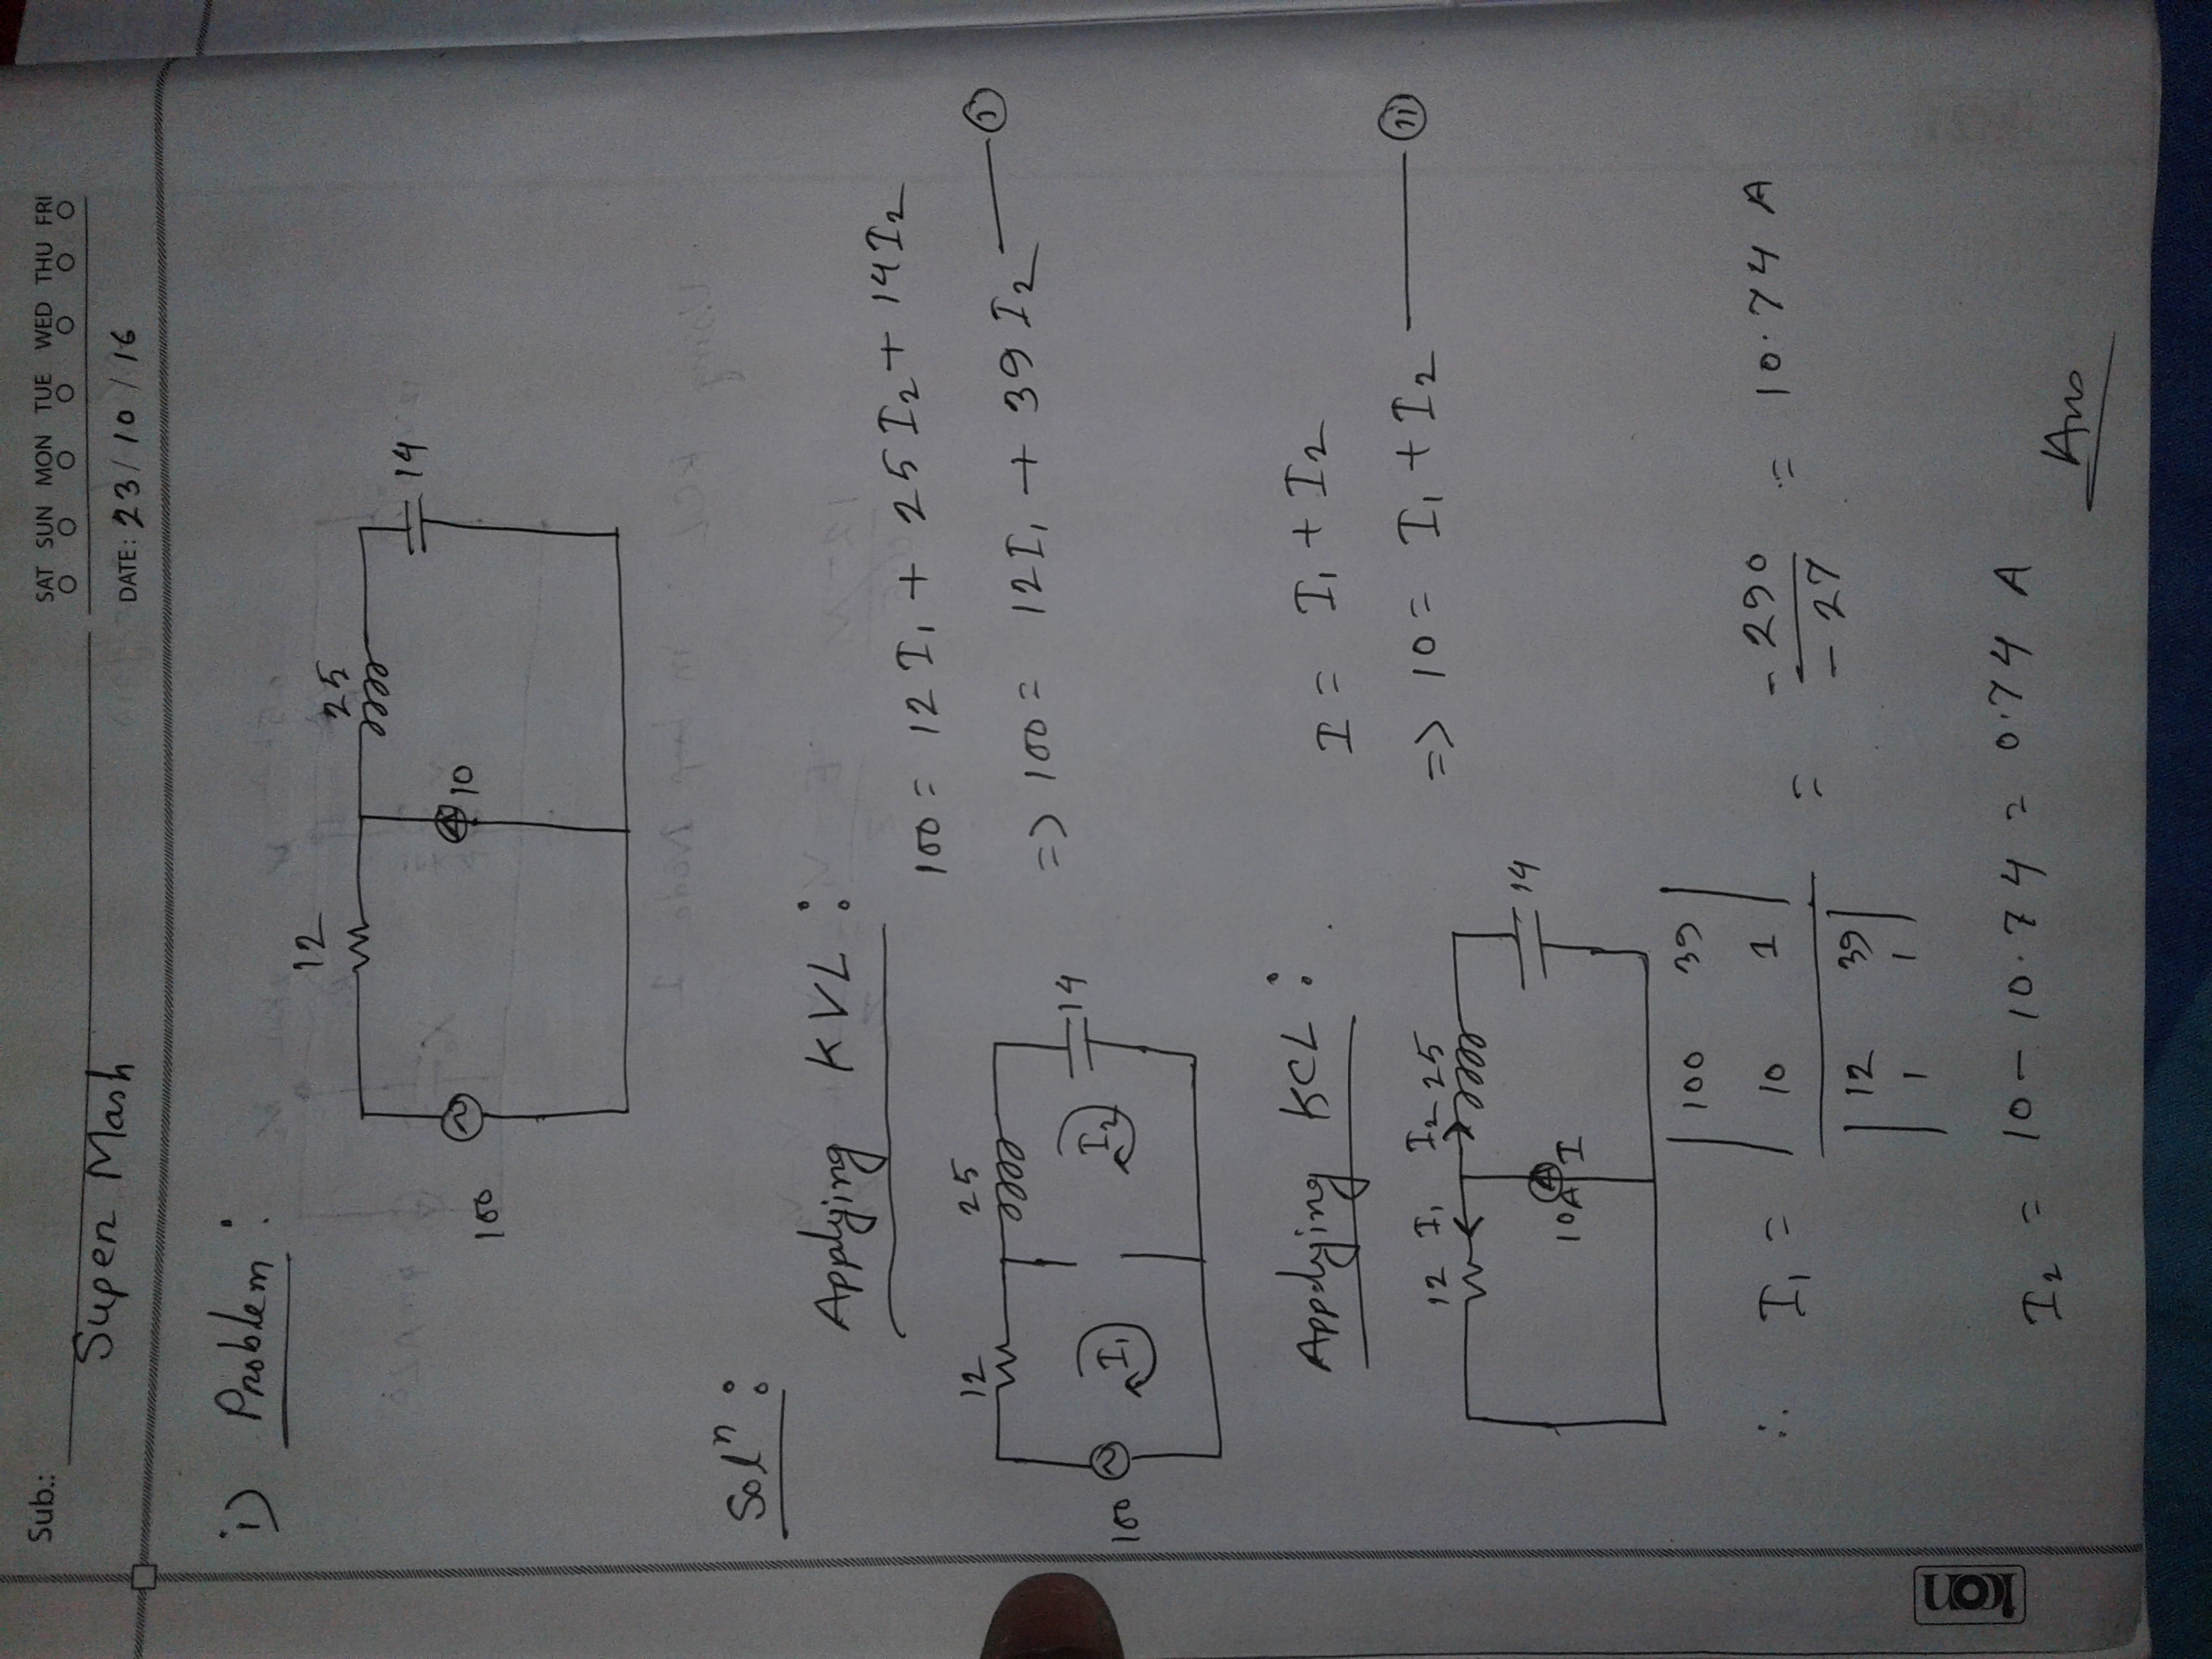 Sub.:
SAT SUN MON TUE WED THU FRI
Super Mash
DATE: 23/10/16
i) Problem:
12
25
14
100
10
Solⁿ:
Applying KVL:
100 = 12 I₁ + 25 I₂ + 14 I₂
12
25
=> 100 = 12 I₁ + 39 I₂ — (i)
100
I₁
I₂
14
Applying KCL:
I = I₁ + I₂
=> 10 = I₁ + I₂ — (ii)
12 I₁ I₂ 25
14
10A I
∴ I₁ = |100 39; 10 1| / |12 39; 1 1| = -290 / -27 = 10.74 A
I₂ = 10 - 10.74 = 0.74 A
Ans
ion